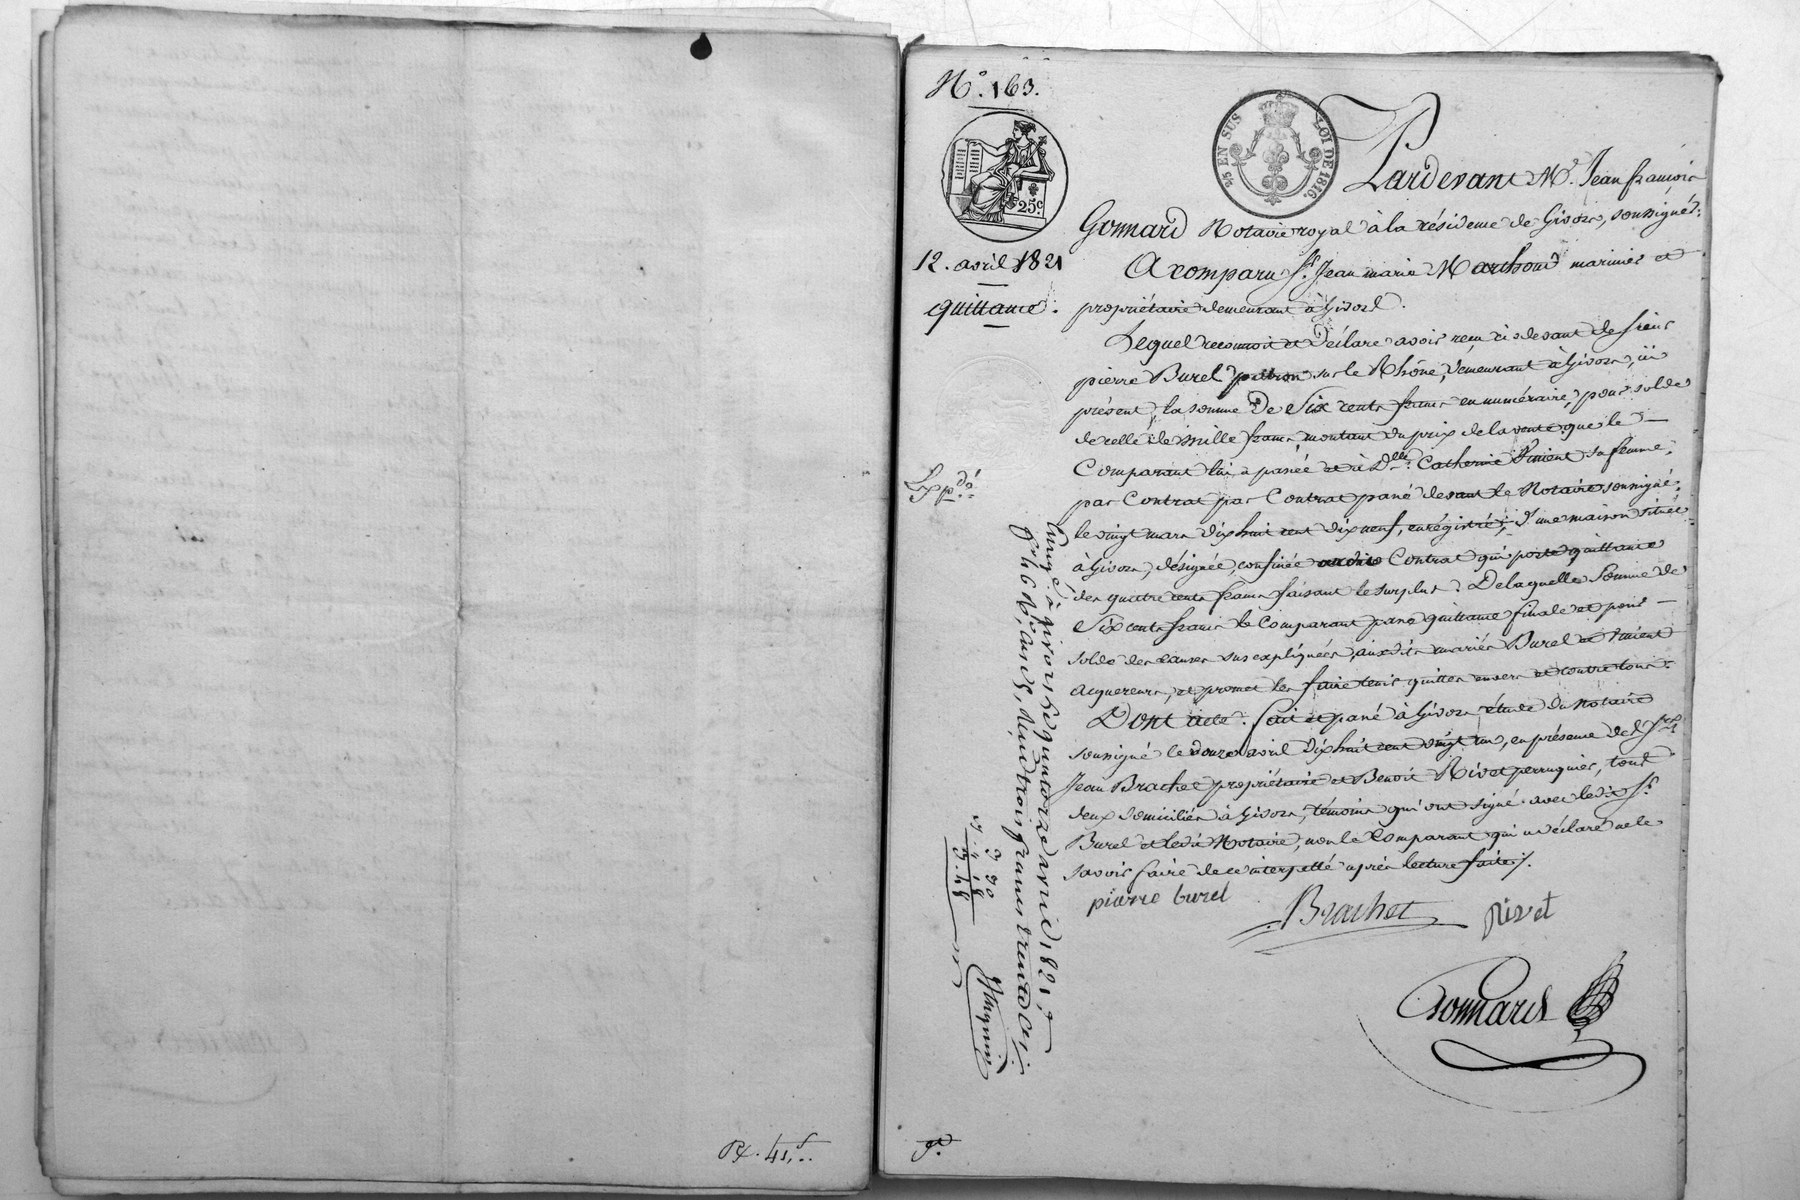 N.° 163.
25 EN SUS LOI DE 1816.
25.c
12. avril 1821
quittance.
Expdo
Pardevant Me. Jean françois
Gonnard Notaire royal à la résidence de Givors, soussigné:
A comparu Sr. Jean marie Marthoud marinier et
propriétaire demeurant à Givors.
Lequel reconnoit et déclare avoir reçu ci devant de sieur
pierre Burel patron sur le Rhône, demeurant à Givors, ici
présent, la somme De Six cents francs en numéraire, pour solde
de celle de mille francs, montant du prix de la vente que le
Comparant lui a passée et à Dlle. Catherine sa femme,
par Contrat par Contrat passé devant le Notaire soussigné,
le vingt mars dix huit cent dix neuf, enrégistré, D'une maison située
à Givors, désignée, confinée Contrat qui porte quittance
des quatre cents francs faisant le surplus. De laquelle Somme de
Six cents francs le Comparant passe quittance finale et pour
solde des causes sus expliquées, aux dits mariés Burel et
acquereurs, et promet les faire tenir quittes envers et contre tous.
Dont acte. fait et passé à Givors, étude du Notaire
soussigné le douze avril dix huit cent vingt un, en présence de Srs
Jean Brachet propriétaire et Benoit Rivet perruquier, tous
deux domiciliés à Givors, témoins qui ont signé avec ledit Sr.
Burel et ledit Notaire, non le Comparant qui a déclaré ne le
savoir faire de ce interpellé après lecture faite /.
pierre burel
Brachet
Rivet
Gonnard
à givors le quatorze avril 1821,
trois francs trente cs.
3 30
3.48
Rx. 41.f..